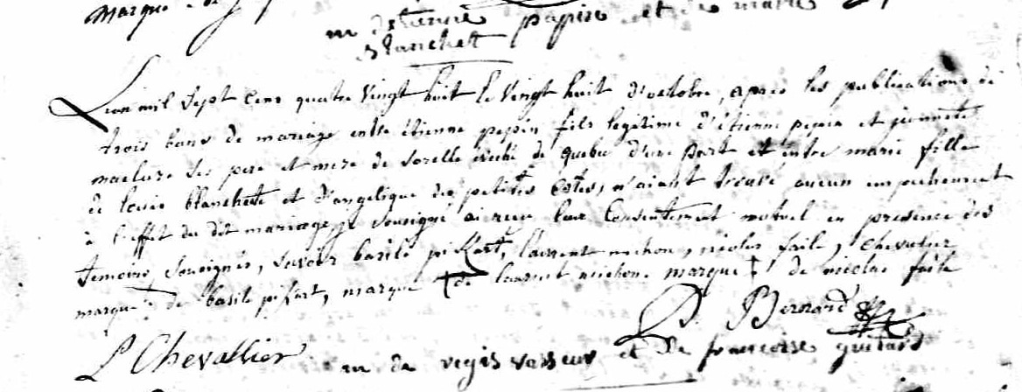 marque de
m d'etienne pepin et de marie
blanchett
L'an mil sept cens quatre vingt huit le vingt huit d'octobre, après les publications de
trois bans de mariage entre etienne pepin fils legitime d'etienne pepin et
ses pere et mere de sorelle eveché de quebec d'une part et entre marie fille
de louis blanchette et d'angelique des petites cotes, n'aiant trouvé aucun empechement
à l'effet du dit mariage je sousigné ai recu leur consentement mutuel en presence des
temoins sousignés, savoir basile laurent michon, nicolas faile, chevalier
marque de basile marque † de laurent michon marque † de nicolas faile
P. Bernard
L Chevallier m de regis vasseur et de francoise guitard